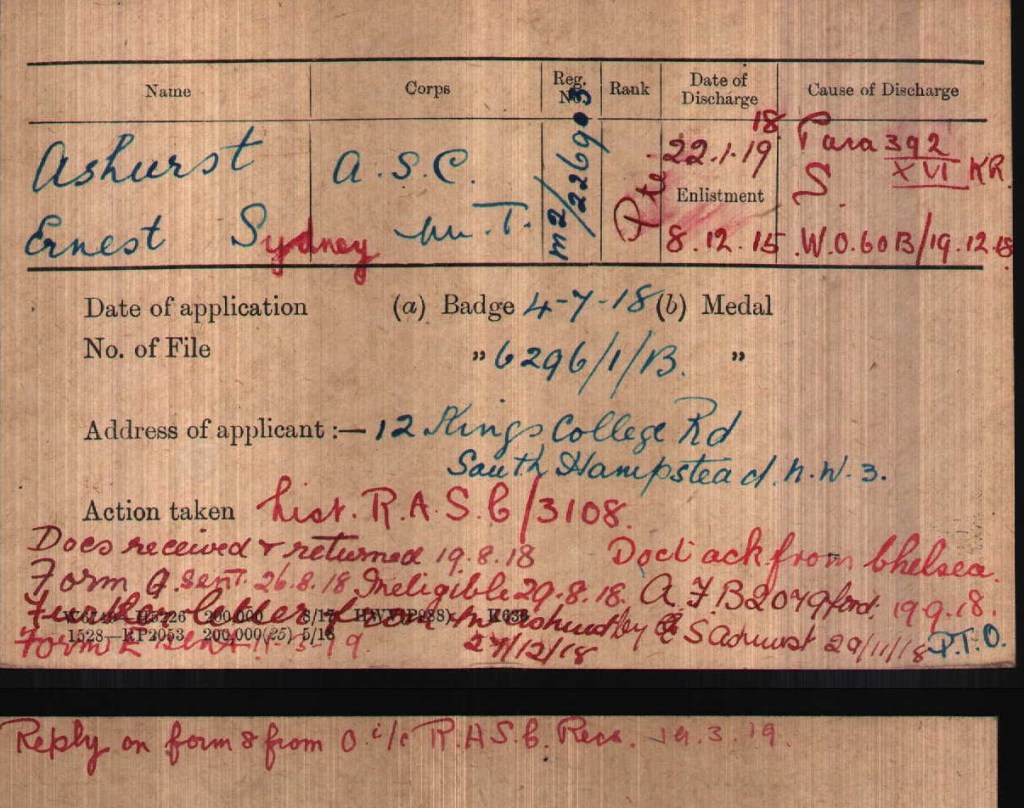 Name Corps Reg. No. Rank Date of Discharge Cause of Discharge
Ashurst A.S.C. m2/226903 Pte 22.1.19 18 Para 392 XVI KR.
Enlistment S
Ernest Sydney M.T. 8.12.15 W.O.60B/19.12.18
Date of application (a) Badge 4-7-18 (b) Medal
No. of File " 6296/1/B. "
Address of applicant :— 12 Kings College Rd
South Hampstead. N.W.3.
Action taken List. R.A.S.C/3108.
Docs received & returned 19.8.18 Doct ack from Chelsea.
Form Q. sent. 26.8.18 Ineligible 29.8.18. A.F.B2079 ford. 19.9.18.
Further by S Ashurst 29/11/18 P.T.O.
200,000 8/17
1528—KP2053 200,000(25) 5/18
Form sent 19. 27/12/18
Reply on form 8 from O i/c R.A.S.C. Recs. 19.3.19.